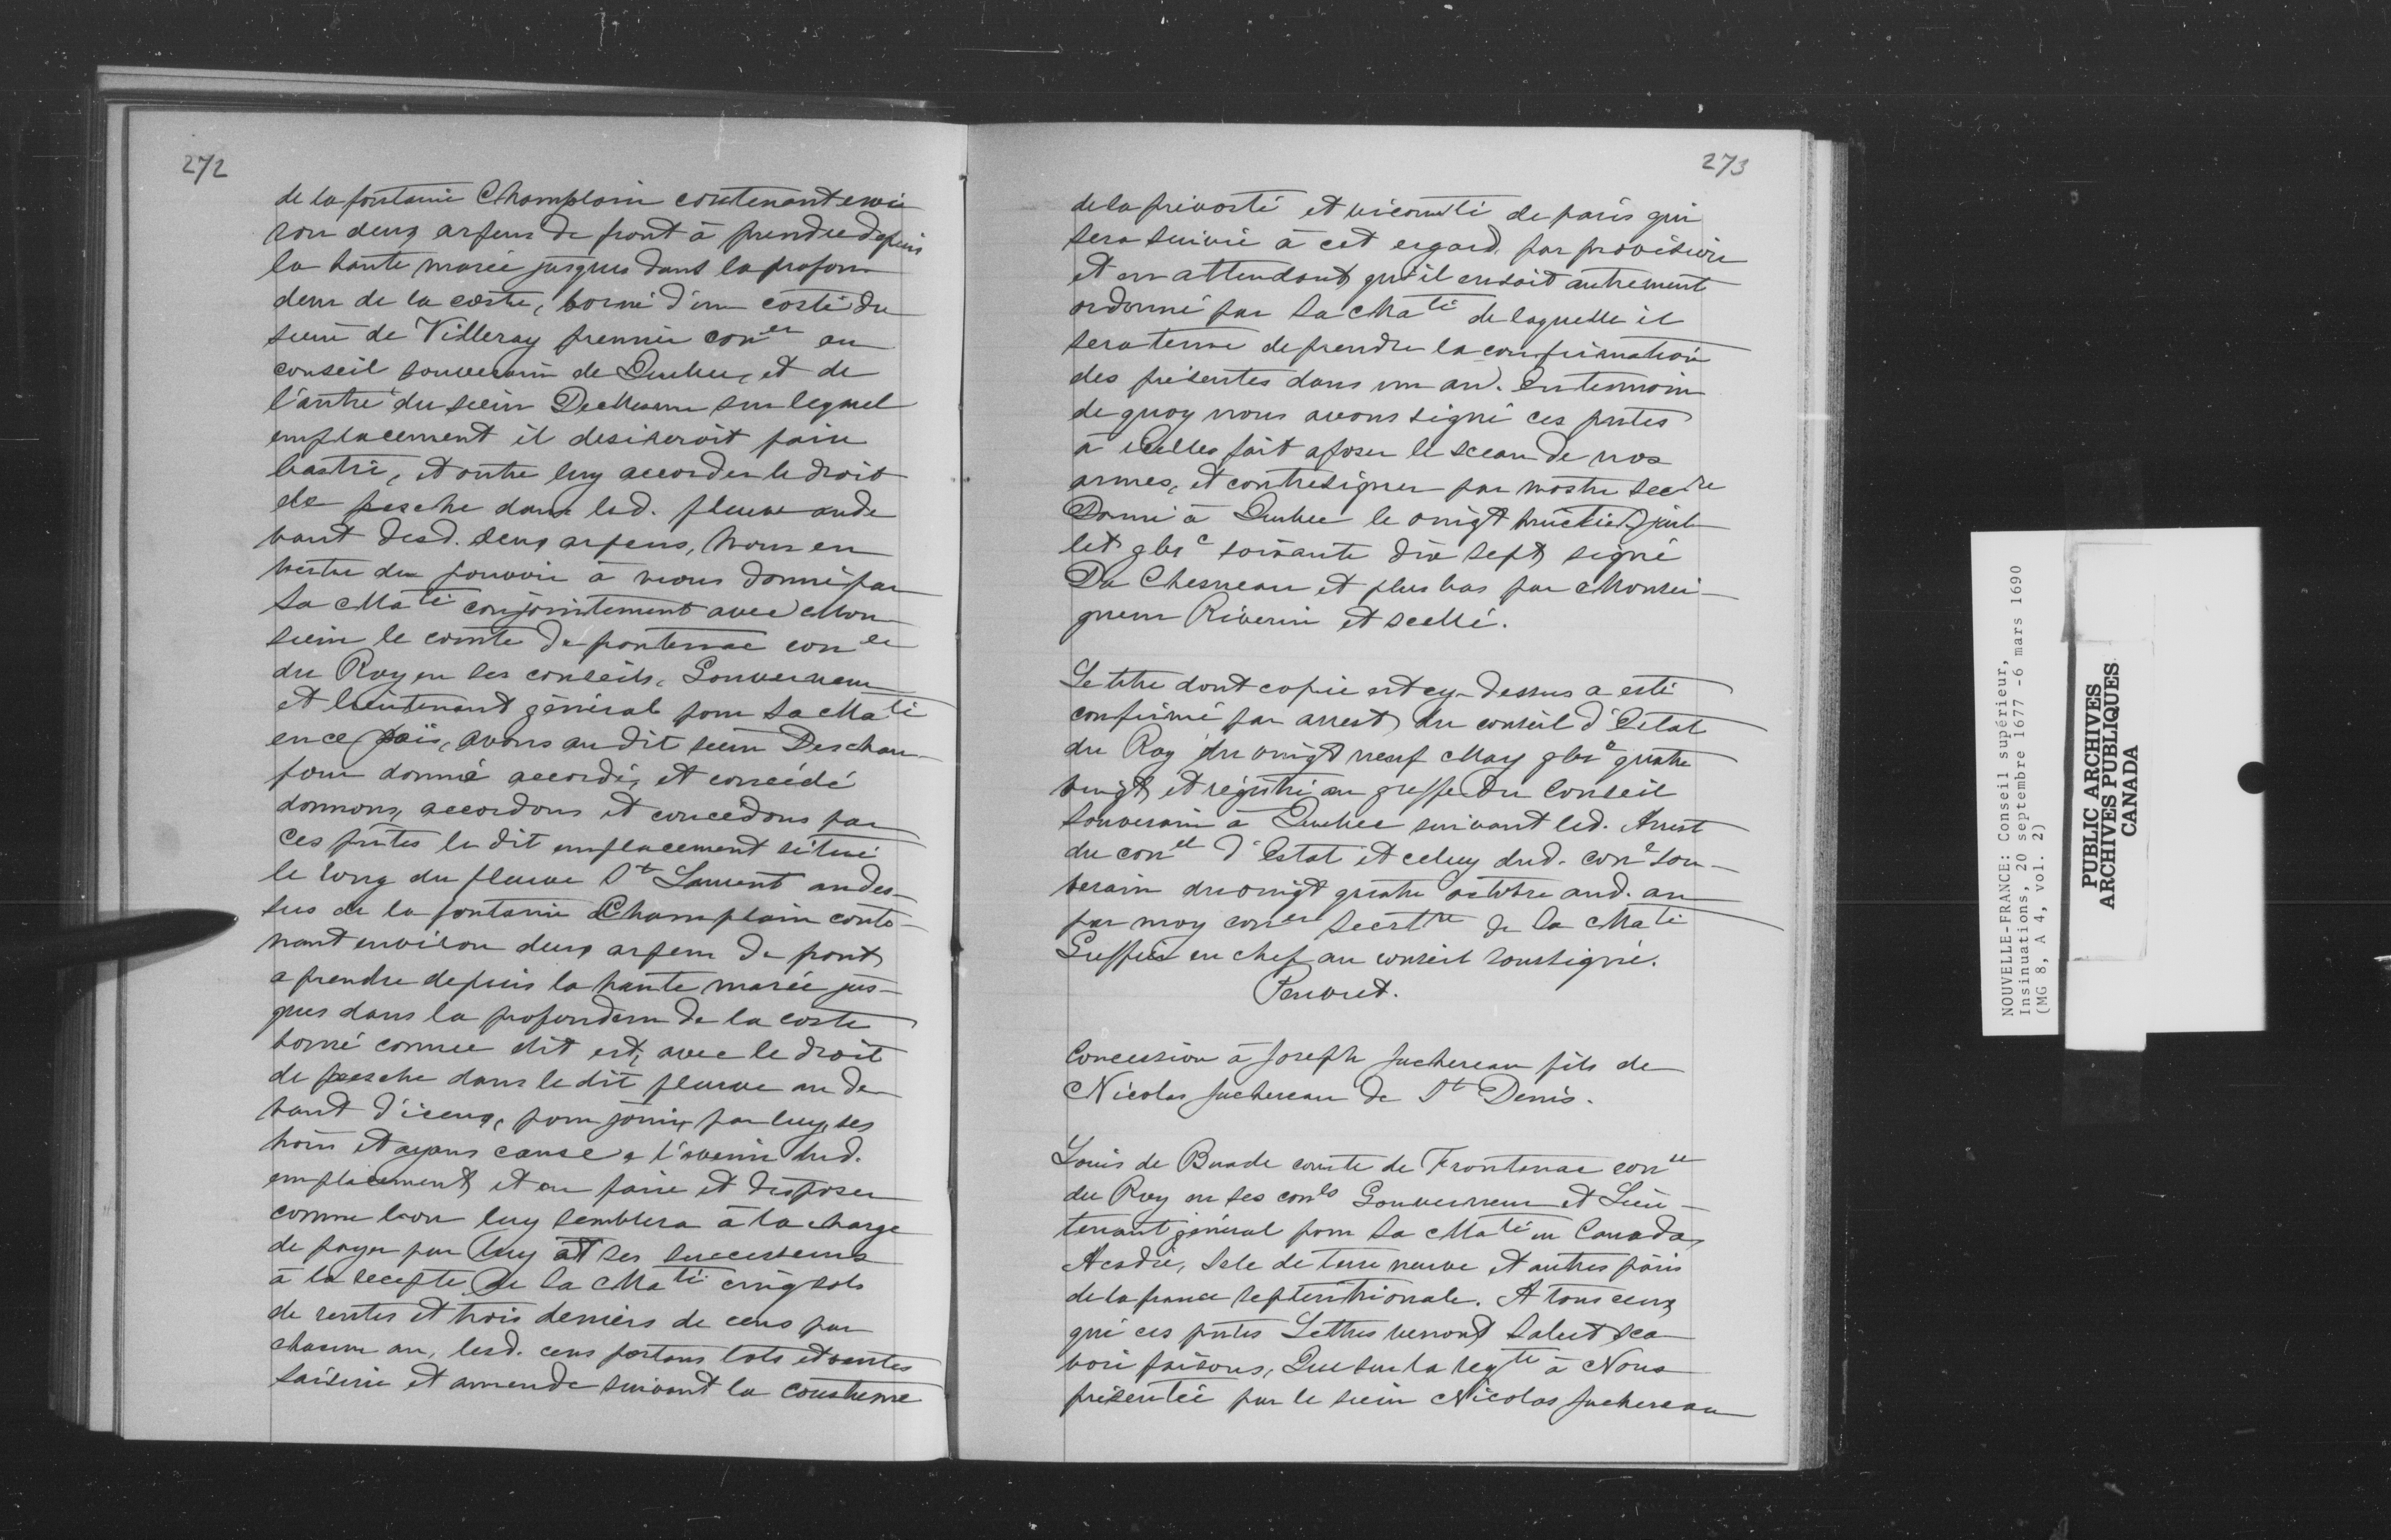 272
de la fontaine Champlain contenant envi
ron deux arpens de front à prendre depuis
la haute marée jusques dans la profon
deur de la coste, borné d'un costé du
sieur de Villeray premier con.er au
conseil souverain de Quebec, et de
l'autre du sieur sur lequel
emplacement il desireroit faire
bastir, et outre luy accorder le droit
de pesche dans led. fleuve aude
vant desd. deux arpens, Nous en
vertu du pouvoir à nous donné par
Sa Maté conjointement avec Mon
sieur le comte de frontenac con.er
du Roy en ses conseils, Gouverneur
et lieutenant général pour Sa Maté
en ce païs, avons au dit sieur Descham
four donné accordé, et concédé
donnons, accordons et concédons par
ces pntes le dit emplacement situé
le long du fleuve St Laurent audes-
sus de la fontaine Champlain conte-
nant environ deux arpens de front
a prendre depuis la haute marée jus-
ques dans la profondeur de la coste
borné comme dit est, avec le droit
de pesche dans le dit fleuve au de
vant d'iceux, pour jouir par luy, ses
hoirs et ayans cause a l'avenir dud.
emplacement, et en faire et disposer
comme bon luy semblera à la charge
de payer par luy et ses successeurs
à la recepte de Sa Maté cinq sols
de rentes et trois deniers de cens par
chacun an, lesd. cens portans lots et ventes
saisine et amende suivant la coustume
273
de la prevosté et vicomté de paris qui
sera suivie à cet egard par provision
et en attendant qu'il en soit autrement
ordonné par Sa Maté de laquelle il
sera tenu de prendre la confirmation
des présentes dans un an. En temoin
de quoy nous avons signé ces pntes
à icelles fait aposer le sceau de nos
armes, et contresigner par nostre sec.re
Donné à Quebec le vingt huictie. juil
let gbic soixante dix sept signé
Du Chesneau et plus bas par Monsei-
gneur Riverin et scellé.
Le titre dont copie est cy-dessus a esté
confirmé par arrest du conseil d'Estat
du Roy du vingt neuf May gbic quatre
vingt, et régistré au greffe du Conseil
Souverain à Quebec suivant led. Arrest
du con.el d'Estat et celuy dud. con.e Sou-
verain du vingt quatre octobre aud. an
par moy con.er Secrt.re de Sa Maté
Greffier en chef au conseil soussigné.
Peuvret.
Concession à Joseph Juchereau fils de
Nicolas Juchereau de St Denis.
Louis de Buade comte de Frontenac con.er
du Roy en ses con.ls Gouverneur et Lieu-
tenant général pour Sa Maté en Canada,
Acadie, Isle de terre neuve et autres païs
de la france septentrionale. A tous ceux
qui ces pntes Lettres verront Salut, sca
voir faisons, Que sur la reqte à Nous
présentée par le sieur Nicolas Juchereau
NOUVELLE-FRANCE: Conseil supérieur,
Insinuations, 20 septembre 1677 -6 mars 1690
(MG 8, A 4, vol. 2)
PUBLIC ARCHIVES
ARCHIVES PUBLIQUES
CANADA